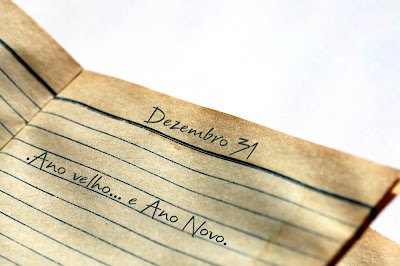 Dezembro 31
.Ano velho... e Ano Novo.